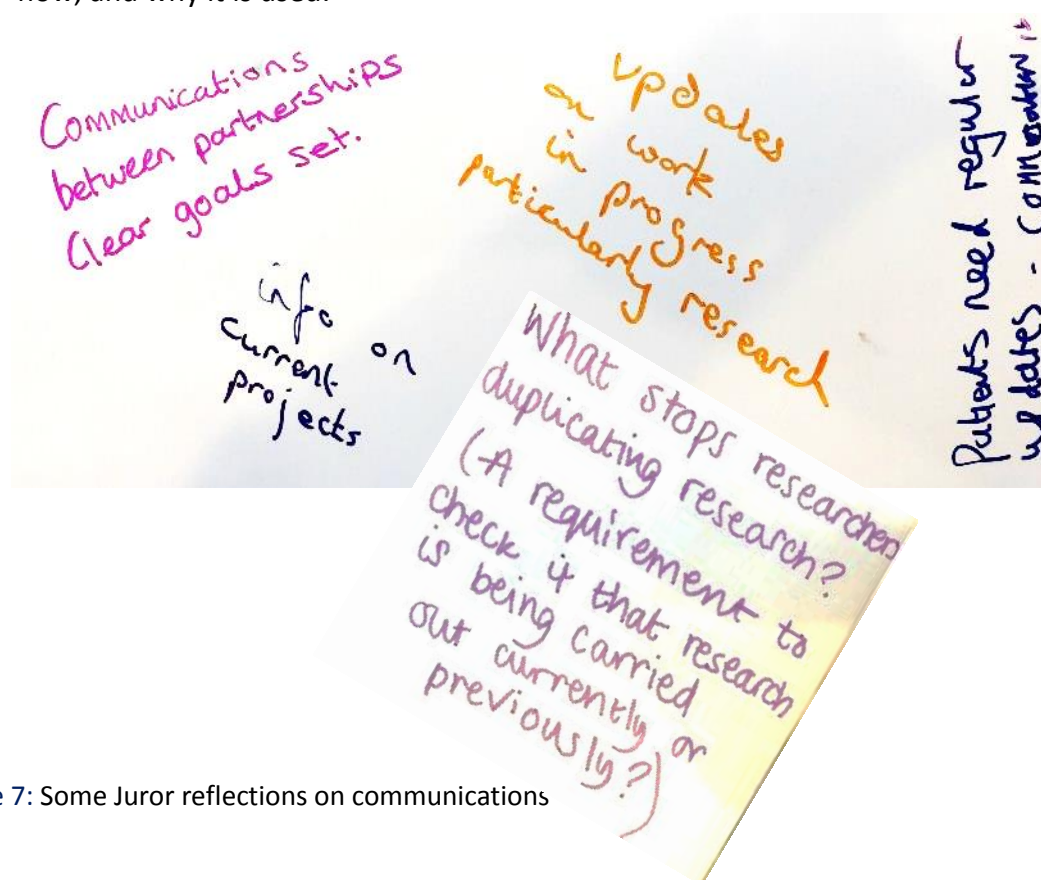 how, and why it is used.
Communications
between partnerships
Clear goals set.
updates
on work
in progress
particularly research
info on
current
projects
Patients need regular
updates -
What stops researchers
duplicating research?
(A requirement to
check if that research
is being carried
out currently or
previously?)
7: Some Juror reflections on communications